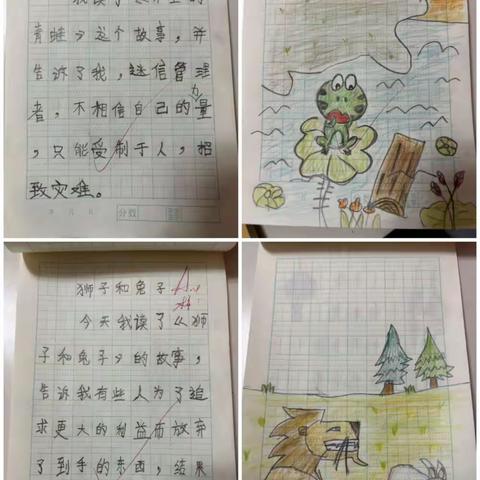 我读了
青蛙》这个故事，并
告诉了我，迷信管理
者，不相信自己的力量
，只能受制于人，招
致灾难。
年 月 日 分数
狮子和兔子
今天我读了《狮
子和兔子》的故事，
告诉我有些人为了追
求更大的利益而放弃
了到手的东西，结果